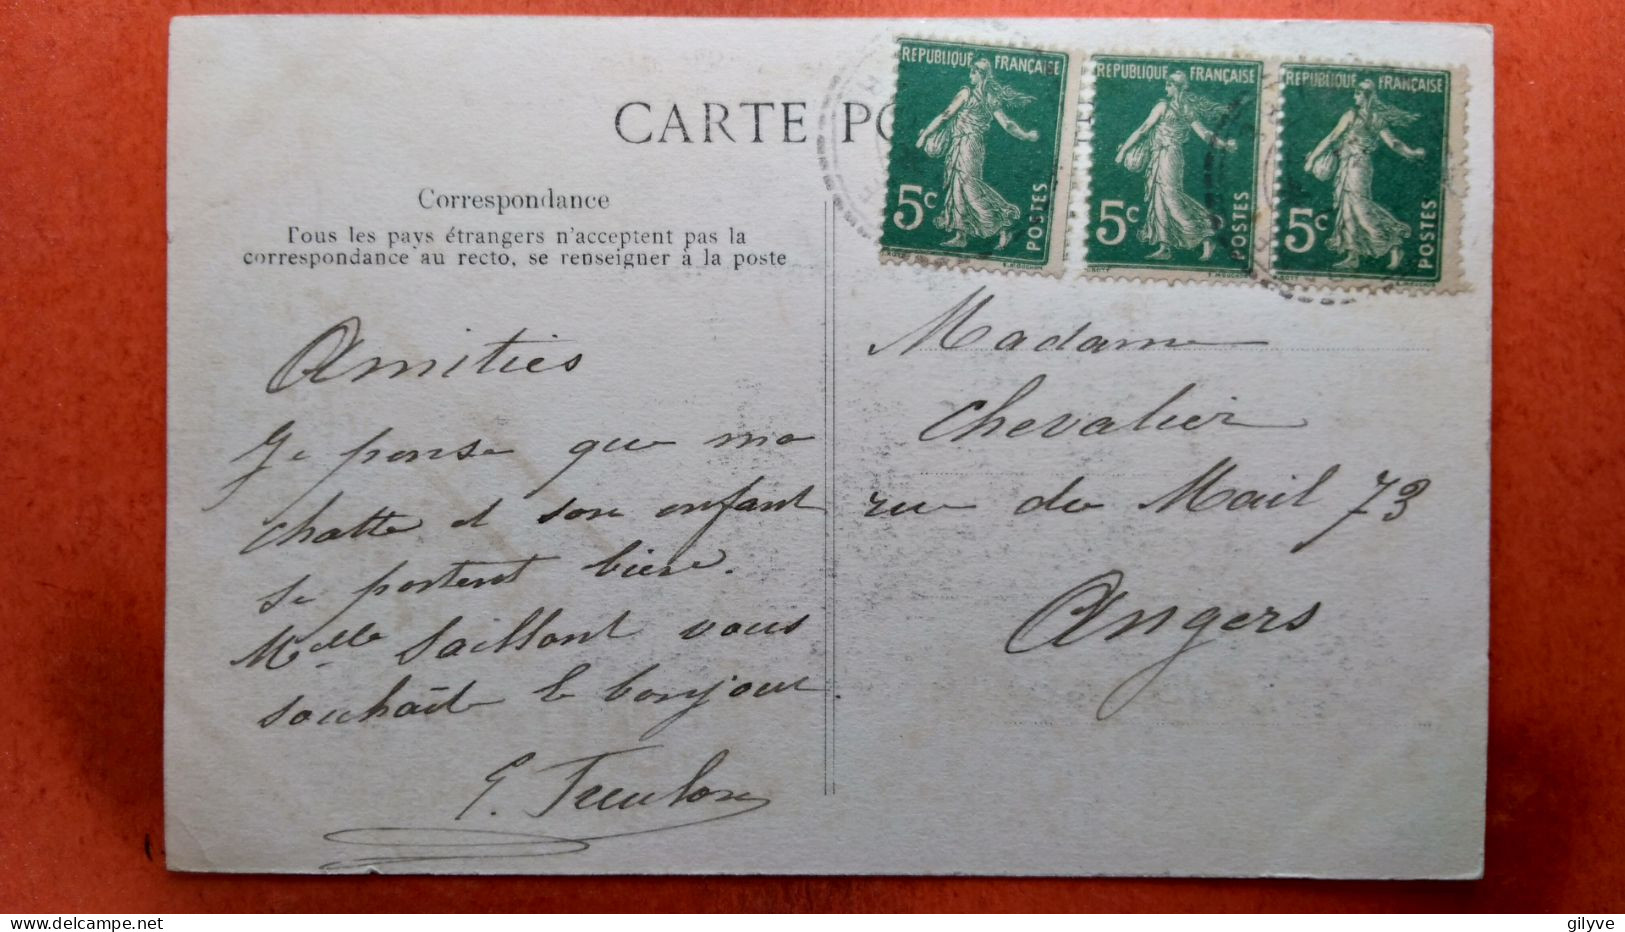 CARTE PO
RÉPUBLIQUE FRANÇAISE
5c
POSTES
RÉPUBLIQUE FRANÇAISE
5c
POSTES
RÉPUBLIQUE FRANÇAISE
5c
POSTES
Correspondance
Tous les pays étrangers n'acceptent pas la
correspondance au recto, se renseigner à la poste
Amitiés
Je pense que ma
chatte et son enfant
se portent bien.
Melle Saillant vous
souhaite le bonjour.
Madame
Chevalier
rue du Mail 73
Angers
gilyve